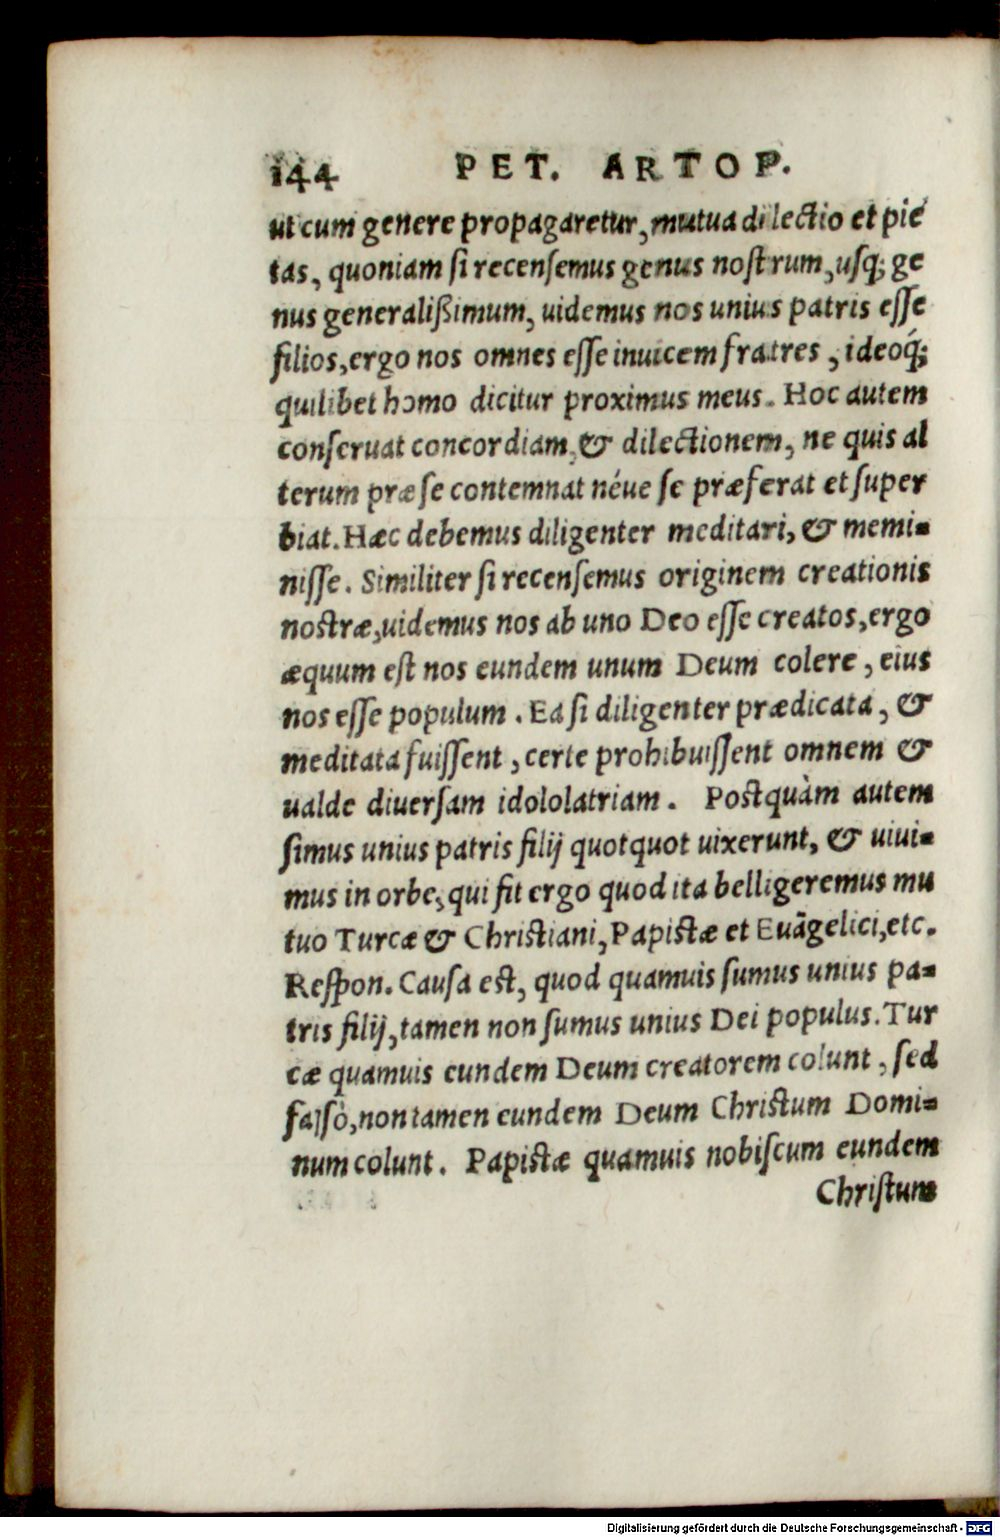 144 PET. ARTOP.
ut cum genere propagaretur, mutua dilectio et pie
tas, quoniam si recensemus genus nostrum, usq; ge
nus generalißimum, uidemus nos unius patris esse
filios, ergo nos omnes esse inuicem fratres, ideoq́;
quilibet homo dicitur proximus meus. Hoc autem
conseruat concordiam, & dilectionem, ne quis al
terum præ se contemnat néue se præferat et super
biat. Hæc debemus diligenter meditari, & memi-
nisse. Similiter si recensemus originem creationis
nostræ, uidemus nos ab uno Deo esse creatos, ergo
æquum est nos eundem unum Deum colere, eius
nos esse populum. Ea si diligenter prædicata, &
meditata fuissent, certe prohibuissent omnem &
ualde diuersam idololatriam. Postquàm autem
simus unius patris filij quotquot uixerunt, & uiui-
mus in orbe, qui fit ergo quod ita belligeremus mu
tuo Turcæ & Christiani, Papistæ et Euãgelici, etc.
Respon. Causa est, quod quamuis sumus unius pa-
tris filij, tamen non sumus unius Dei populus. Tur
cæ quamuis eundem Deum creatorem colunt, sed
falsò, non tamen eundem Deum Christum Domi-
num colunt. Papistæ quamuis nobiscum eundem
Christum
Digitalisierung gefördert durch die Deutsche Forschungsgemeinschaft - DFG